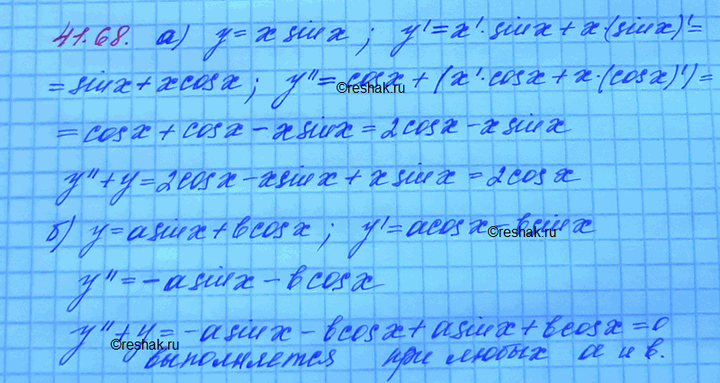 41.68. а) y = x sin x ; y' = x'·sin x + x·(sin x)' =
= sin x + x cos x ; y'' = cos x + (x'·cos x + x·(cos x)') =
©reshak.ru
= cos x + cos x - x sin x = 2cos x - x sin x
y'' + y = 2cos x - x sin x + x sin x = 2 cos x
б) y = a sin x + b cos x ; y' = a cos x - b sin x
©reshak.ru
y'' = -a sin x - b cos x
y'' + y = -a sin x - b cos x + a sin x + b cos x = 0
©reshak.ru
выполняется при любых a и b.